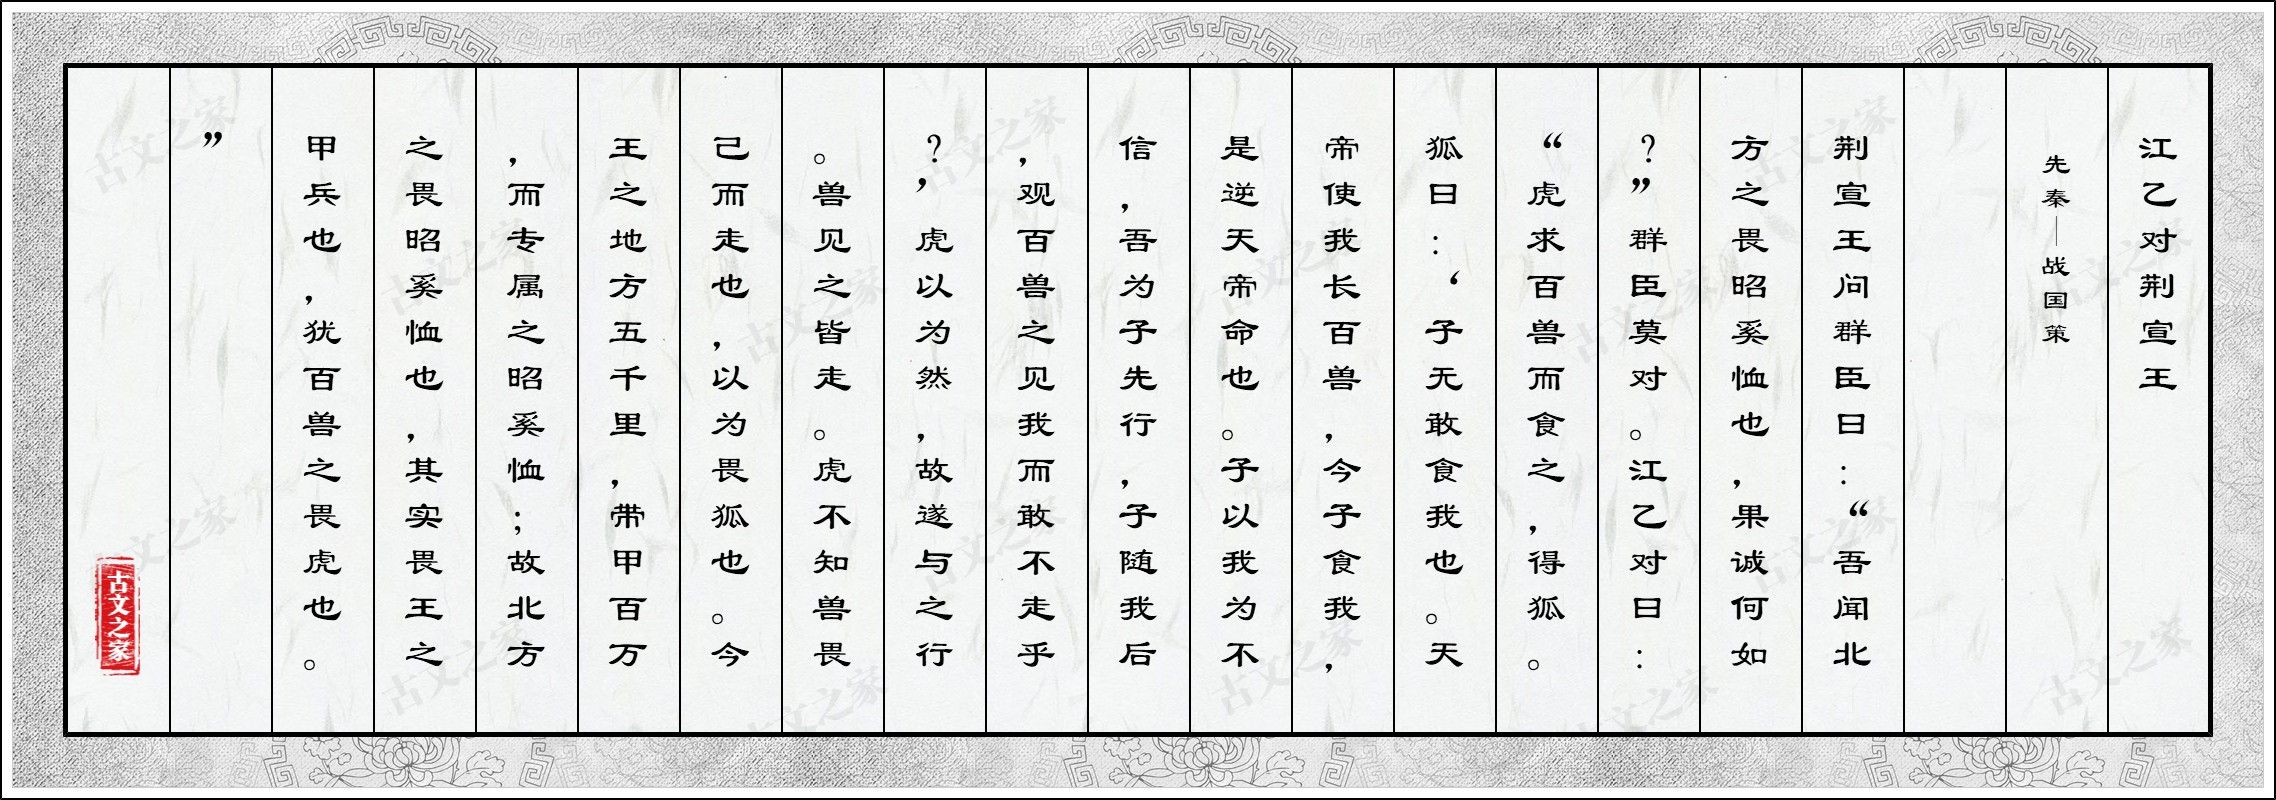 江乙对荆宣王
先秦—战国策
荆宣王问群臣曰：“吾闻北
方之畏昭奚恤也，果诚何如
？”群臣莫对。江乙对曰：
“虎求百兽而食之，得狐。
狐曰：‘子无敢食我也。天
帝使我长百兽，今子食我，
是逆天帝命也。子以我为不
信，吾为子先行，子随我后
，观百兽之见我而敢不走乎
？’虎以为然，故遂与之行
。兽见之皆走。虎不知兽畏
己而走也，以为畏狐也。今
王之地方五千里，带甲百万
，而专属之昭奚恤；故北方
之畏昭奚恤也，其实畏王之
甲兵也，犹百兽之畏虎也。
”
古文之家